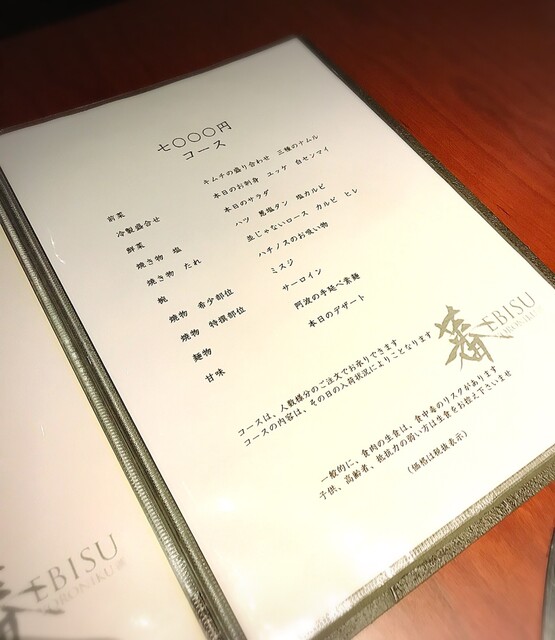 七〇〇〇円
コース
前菜 キムチの盛り合わせ 三種のナムル
冷製盛合せ 本日のお刺身 ユッケ 白センマイ
鮮菜 本日のサラダ
焼き物 塩 ハツ 葱塩タン 塩カルビ
焼き物 たれ 並じゃないロース カルビ ヒレ
椀 ハチノスのお吸い物
焼物 希少部位 ミスジ
焼物 特撰部位 サーロイン
麺物 阿波の手延べ素麺
甘味 本日のデザート
コースは、人数様分のご注文でお承りできます
コースの内容は、その日の入荷状況によりことなります
EBISU
一般的に、食肉の生食は、食中毒のリスクがあります
子供、高齢者、抵抗力の弱い方は生食をお控え下さいませ
(価格は税抜表示)
EBISU